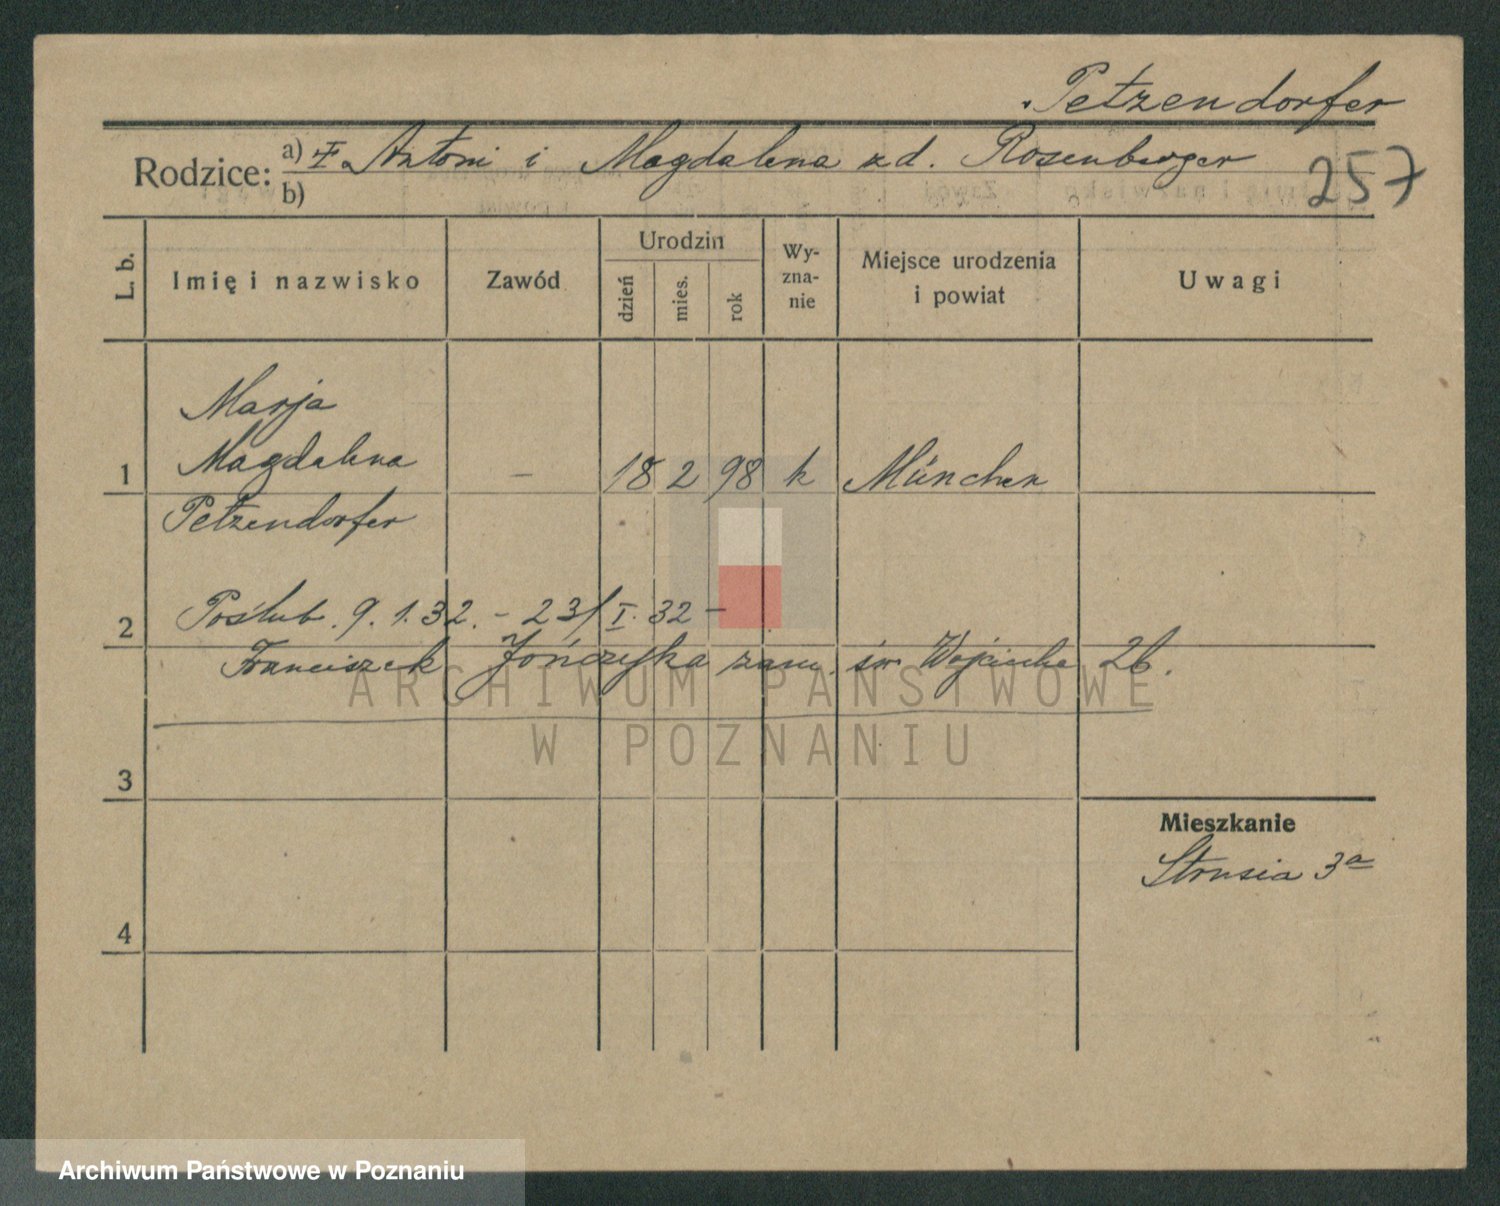 Petzendorfer
Rodzice: a) I. Antoni i Magdalena z d. Rosenberger
b)
257
L. b.
Imię i nazwisko
Zawód
Urodzin
dzień
mies.
rok
Wy-
zna-
nie
Miejsce urodzenia
i powiat
Uwagi
Marja
Magdalena
1 – 18 2 98 k München
Petzendorfer
2 Poślub. 9.1.32. – 23/I.32 –
Franciszek Jończyka zam. św Wojciecha 26.
ARCHIWUM PAŃSTWOWE
W POZNANIU
3
Mieszkanie
Strusia 3a
4
Archiwum Państwowe w Poznaniu